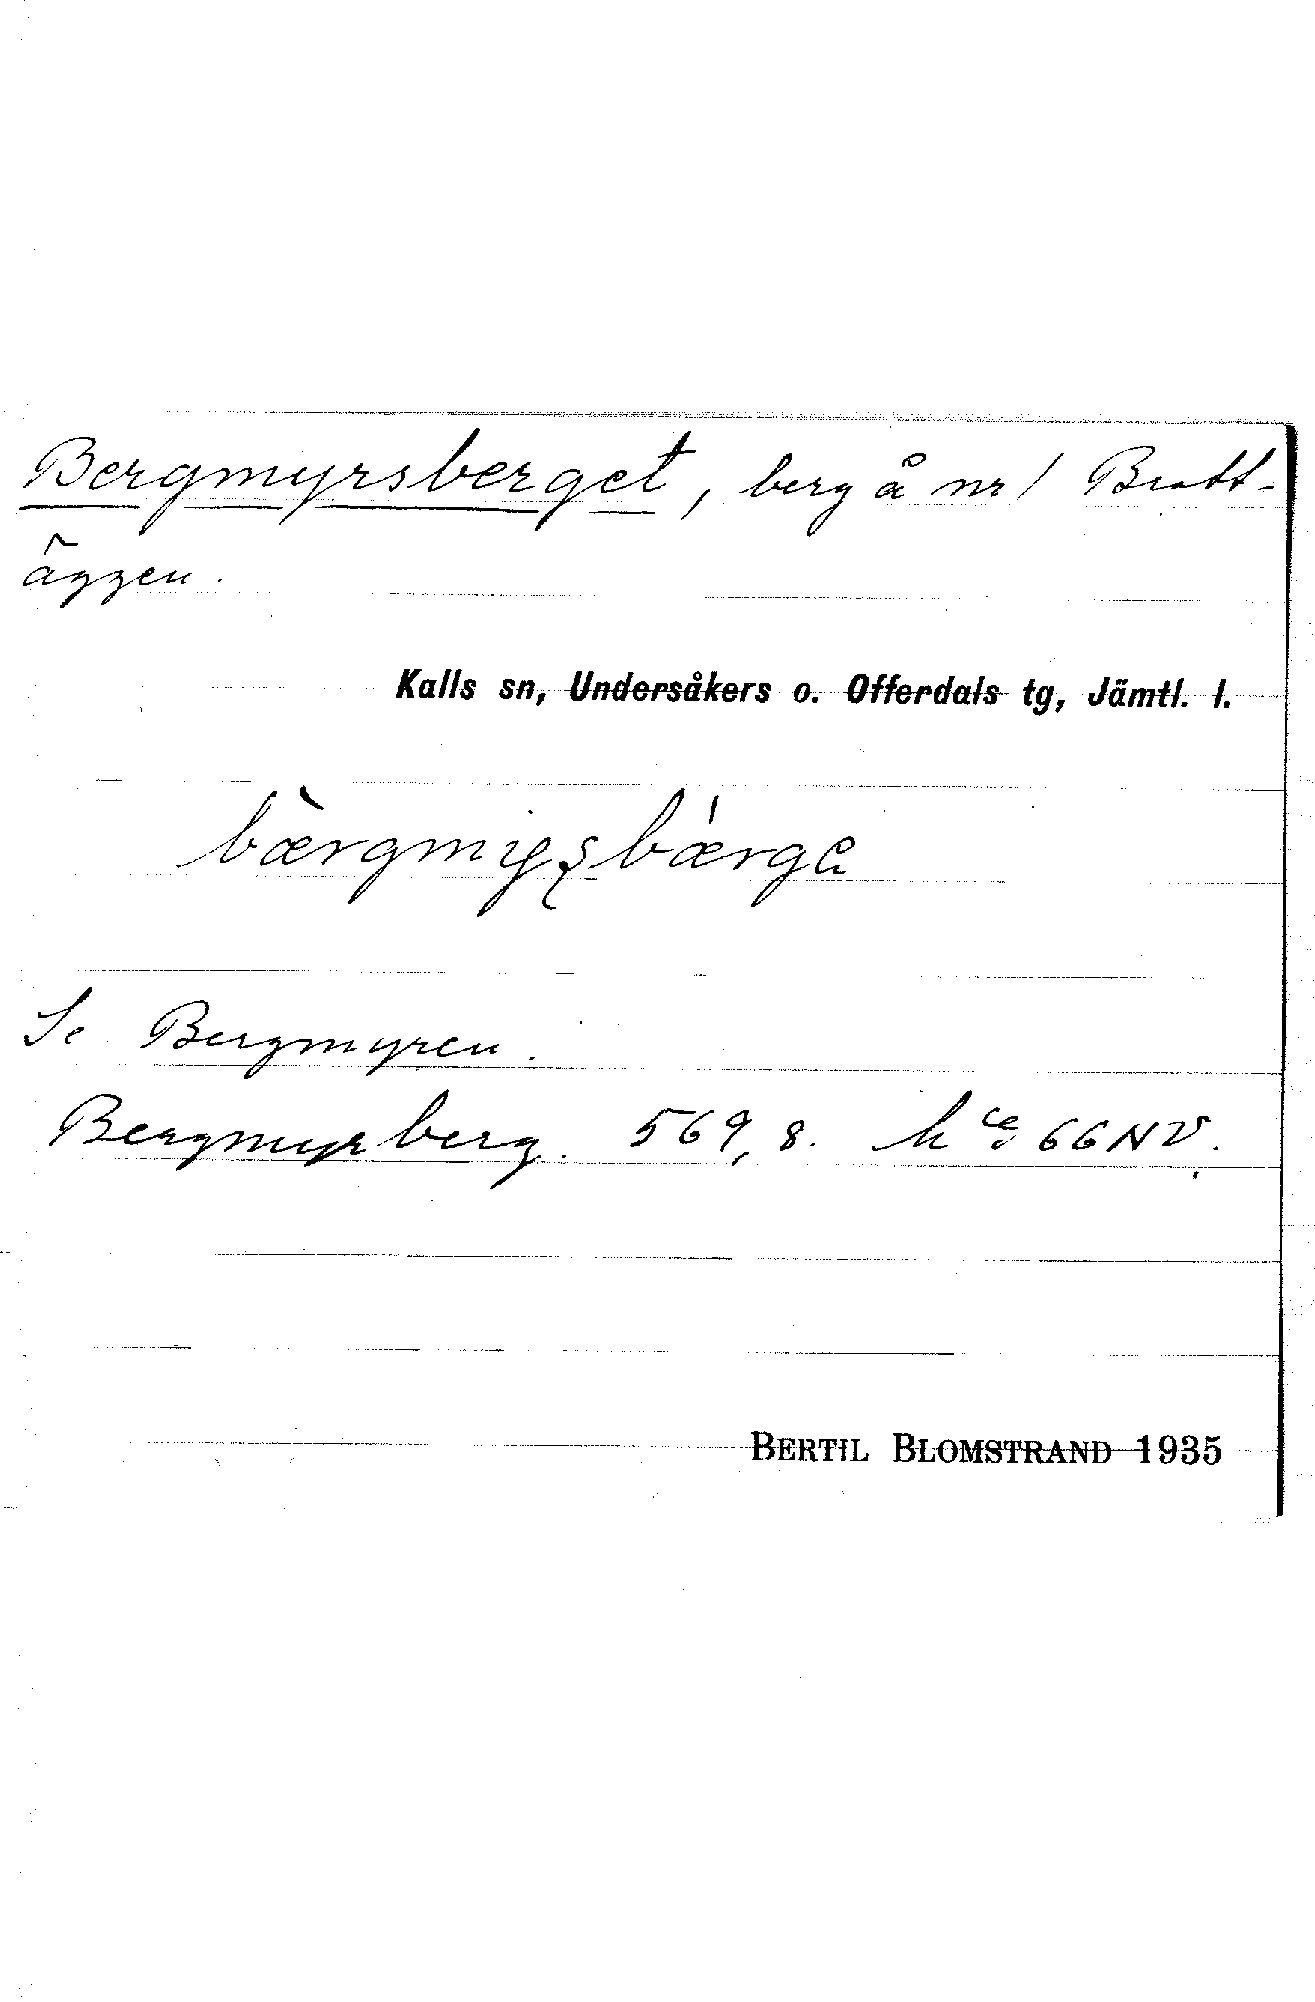 Bergmyrsberget, berg å nr 1 Bratt-
äggen.
Kalls sn, Undersåkers o. Offerdals tg, Jämtl. l.
Se Bergmyren.
Bergmyrberg. 569,8. 66 NV.
BERTIL BLOMSTRAND 1935